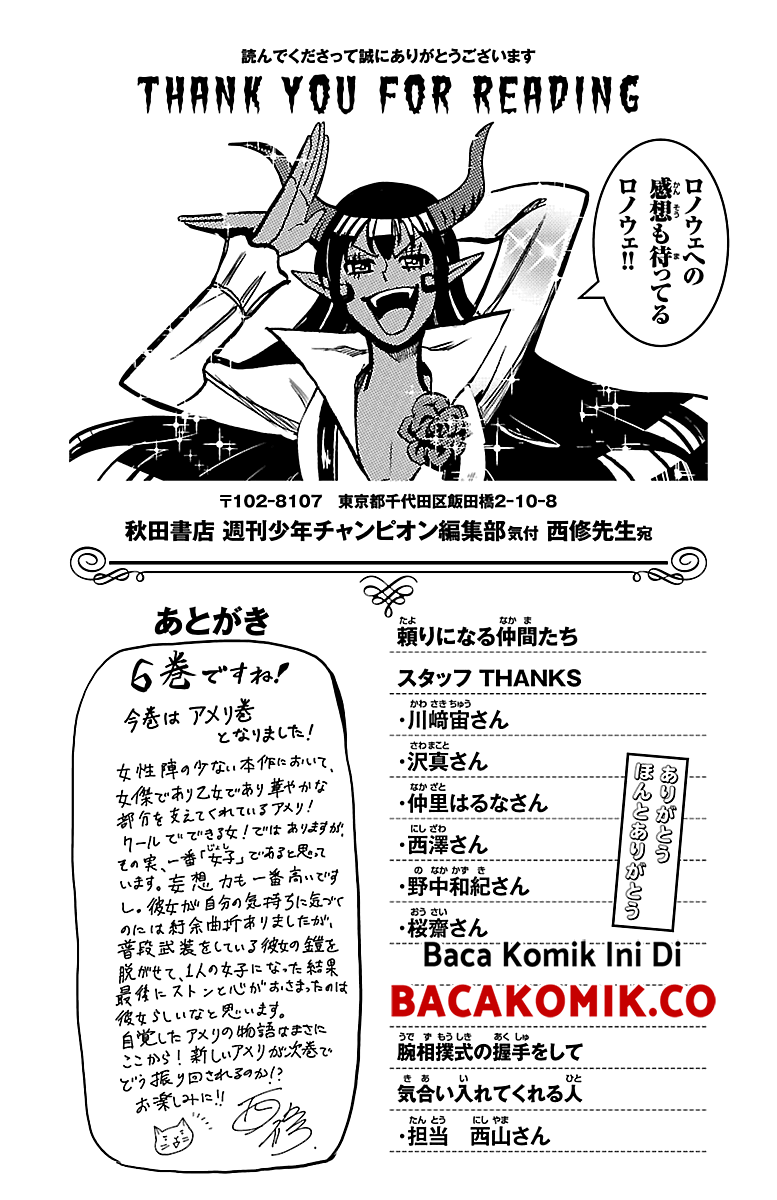 読んでくださって誠にありがとうございます
THANK YOU FOR READING
ロノウェへの
感想も待ってる
ロノウェ!!
〒102-8107 東京都千代田区飯田橋2-10-8
秋田書店 週刊少年チャンピオン編集部気付 西修先生宛
あとがき
6巻ですね!
今巻は アメリ巻
となりました!
女性陣の少ない本作において、
女傑であり乙女であり華やかな
部分を支えてくれているアメリ!
クールでできる女!ではありますが、
その実、一番「女子」であると思って
います。妄想力も一番高いですし
し。彼女が自分の気持ちに気づく
のには紆余曲折ありましたが、
普段武装をしている彼女の鎧を
脱がせて、1人の女子になった結果
最後にストンと心がおさまったのは
彼女らしいなと思います。
自覚したアメリの物語はまさに
ここから!新しいアメリが次巻で
どう振り回されるのか!?
お楽しみに!!
西修
頼りになる仲間たち
スタッフ THANKS
・川﨑宙さん
・沢真さん
・仲里はるなさん
・西澤さん
・野中和紀さん
・桜齋さん
ありがとう
ほんとありがとう
Baca Komik Ini Di
BACAKOMIK.CO
腕相撲式の握手をして
気合い入れてくれる人
・担当 西山さん